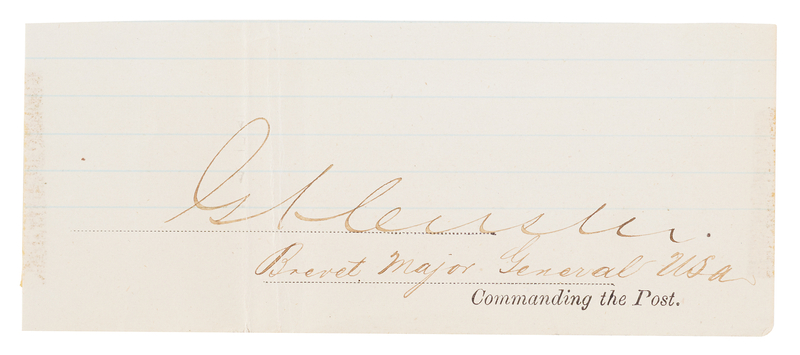 GACuster.
Brevet Major General USA
Commanding the Post.